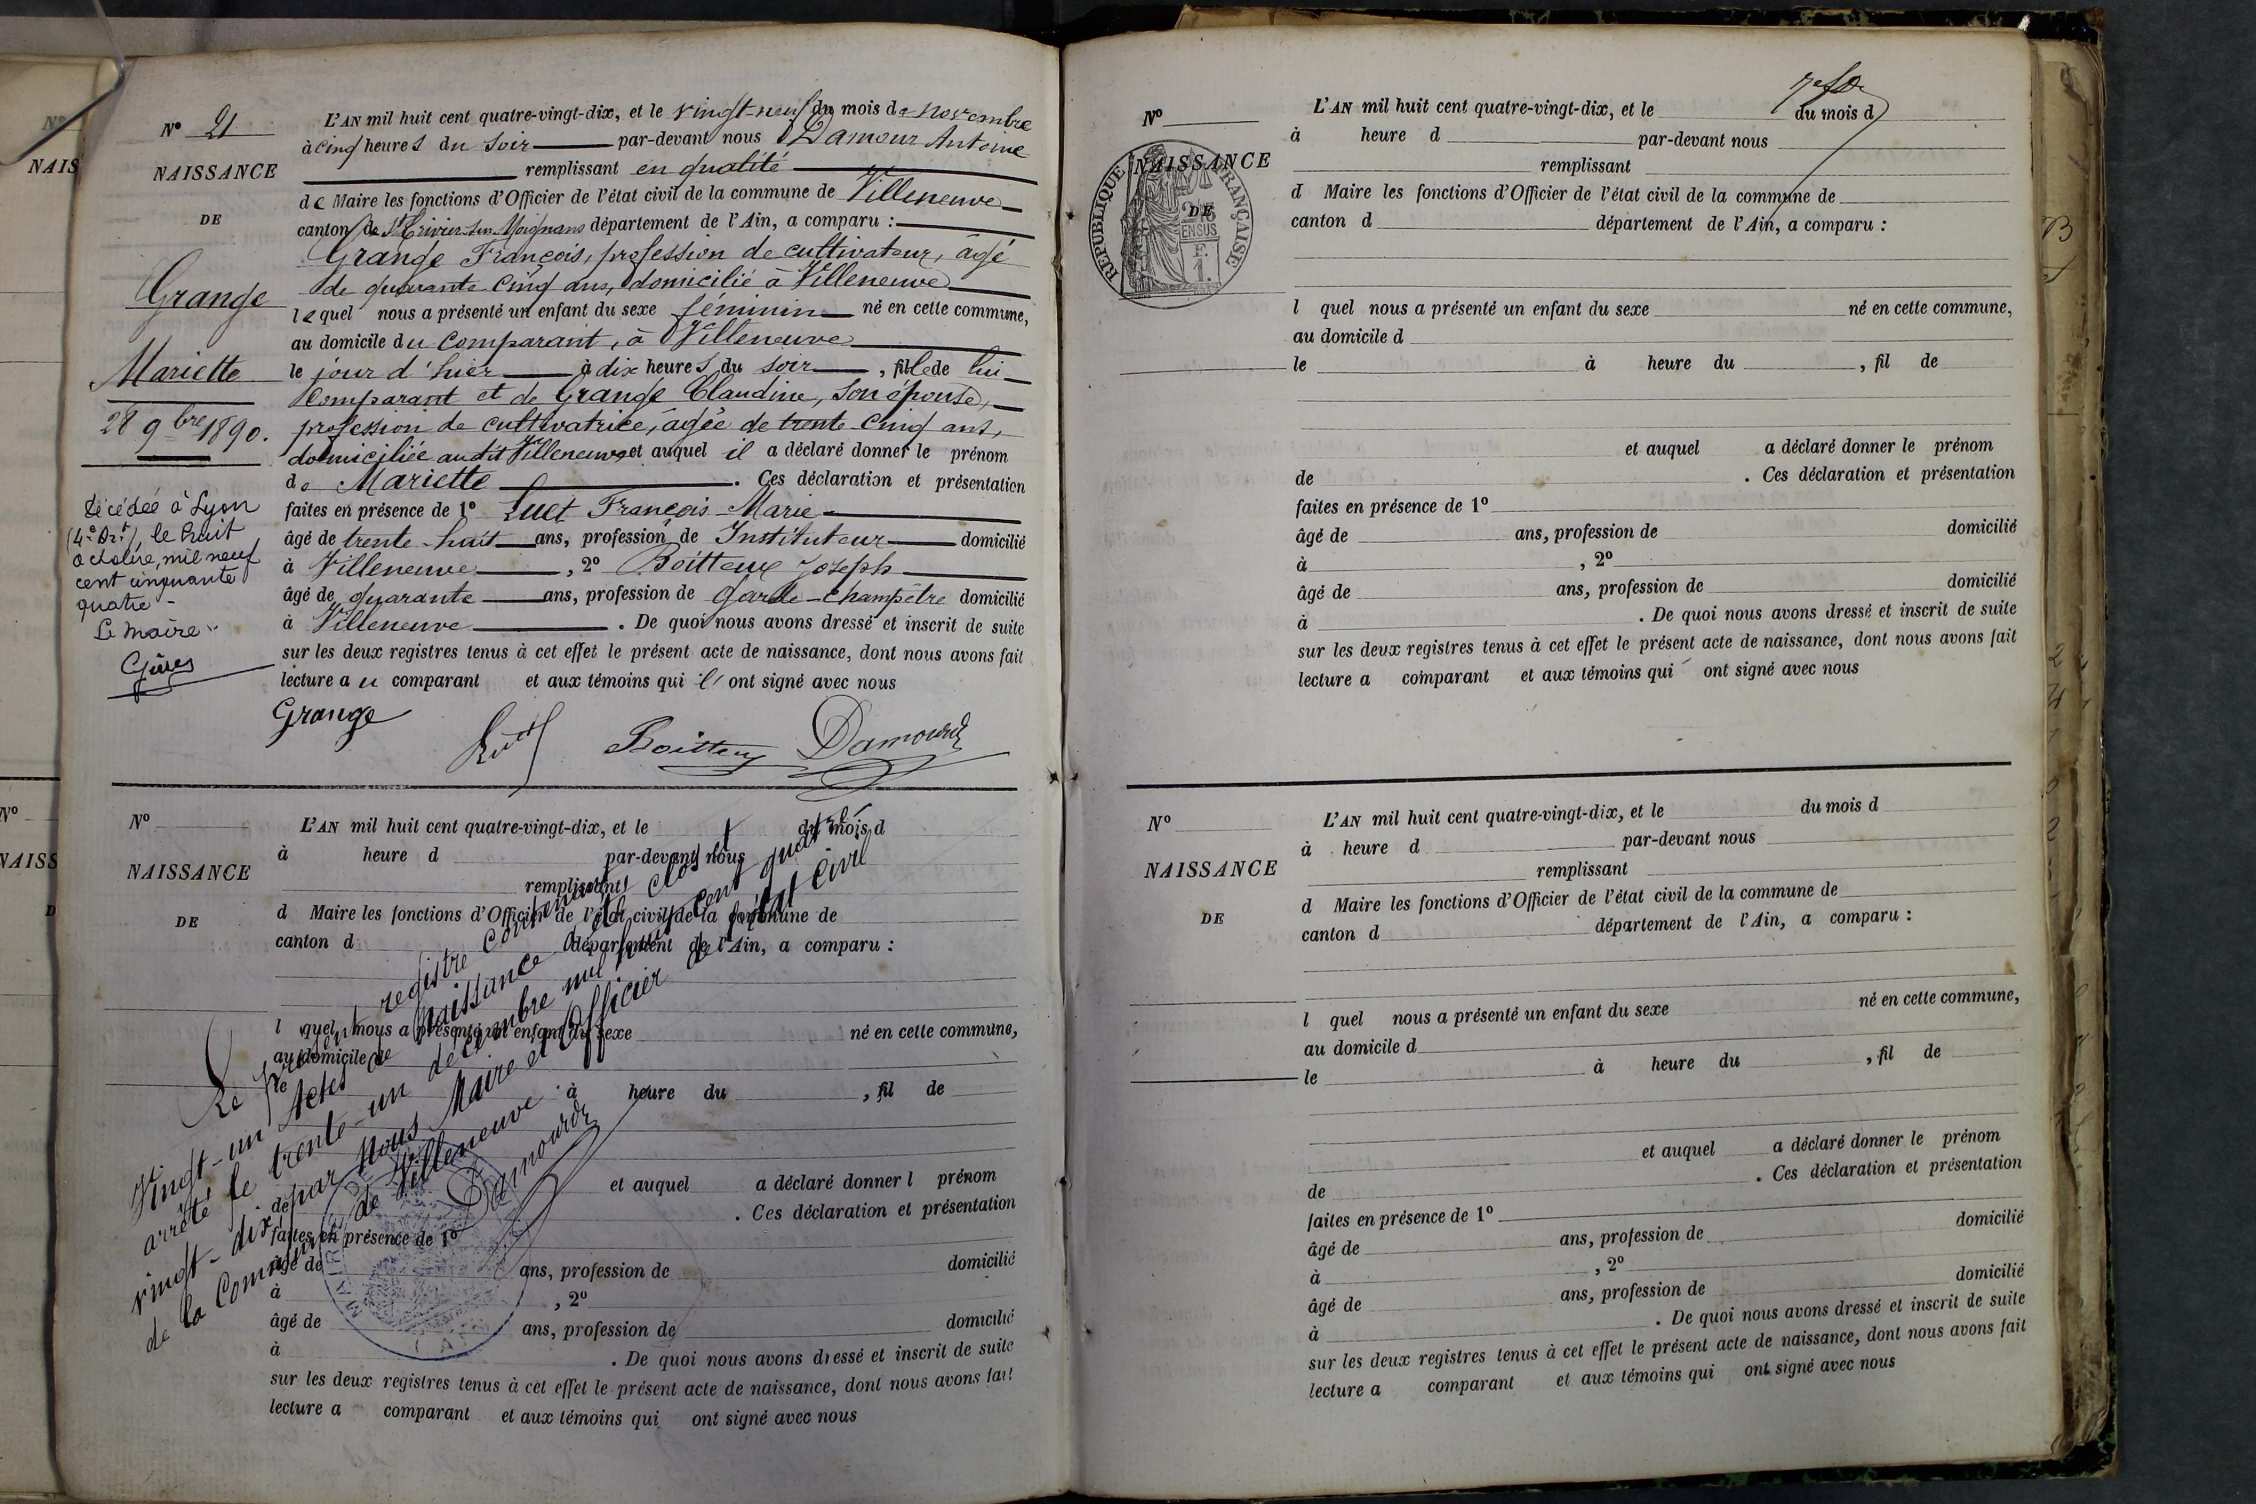 N° 21
NAISSANCE
DE
Grange
Mariette
28 9bre 1890.
Décédée à Lyon
(4e Art), le huit
octobre, mil neuf
cent cinquante
quatre -
Le Maire
L'AN mil huit cent quatre-vingt-dix, et le vingt-neuf du mois de novembre
à cinq heures du soir par-devant nous Damour Antoine
remplissant en qualité
de Maire les fonctions d'Officier de l'état civil de la commune de Villeneuve
canton de St Trivier-sur-Moignans département de l'Ain, a comparu :
Grange François, profession de cultivateur, âgé
de quarante cinq ans, domicilié à Villeneuve
lequel nous a présenté un enfant du sexe féminin né en cette commune,
au domicile du comparant, à Villeneuve
le jour d'hier à dix heures du soir, fille de lui
comparant et de Grange Claudine, son épouse,
profession de cultivatrice, âgée de trente-cinq ans,
domiciliée audit Villeneuve et auquel il a déclaré donner le prénom
de Mariette. Ces déclaration et présentation
faites en présence de 1° Luet François-Marie
âgé de trente-huit ans, profession de Instituteur domicilié
à Villeneuve, 2° Boitteux Joseph
âgé de quarante ans, profession de garde-champêtre domicilié
à Villeneuve. De quoi nous avons dressé et inscrit de suite
sur les deux registres tenus à cet effet le présent acte de naissance, dont nous avons fait
lecture au comparant et aux témoins qui ont signé avec nous
Grange
Luet Boitteux Damour
N°
NAISSANCE
DE
L'AN mil huit cent quatre-vingt-dix, et le du mois d
à heure d par-devant nous
remplissant
d Maire les fonctions d'Officier de l'état civil de la commune de
canton d département de l'Ain, a comparu :
l quel nous a présenté un enfant du sexe né en cette commune,
au domicile d
le à heure du , fil de
et auquel a déclaré donner l prénom
de . Ces déclaration et présentation
faites en présence de 1°
âgé de ans, profession de domicilié
à , 2°
âgé de ans, profession de domicilié
à . De quoi nous avons dressé et inscrit de suite
sur les deux registres tenus à cet effet le présent acte de naissance, dont nous avons fait
lecture a comparant et aux témoins qui ont signé avec nous
Le présent registre contenant
Vingt-un Actes de Naissance a été clos et
arrêté le trente-un décembre mil huit cent quatre
vingt-dix, par Nous Maire et Officier de l'état civil
de la Commune de Villeneuve.
Damour
N°
NAISSANCE
DE
RÉPUBLIQUE FRANÇAISE
L'AN mil huit cent quatre-vingt-dix, et le du mois d
à heure d par-devant nous
remplissant
d Maire les fonctions d'Officier de l'état civil de la commune de
canton d département de l'Ain, a comparu :
l quel nous a présenté un enfant du sexe né en cette commune,
au domicile d
le à heure du , fil de
et auquel a déclaré donner le prénom
de . Ces déclaration et présentation
faites en présence de 1°
âgé de ans, profession de domicilié
à , 2°
âgé de ans, profession de domicilié
à . De quoi nous avons dressé et inscrit de suite
sur les deux registres tenus à cet effet le présent acte de naissance, dont nous avons fait
lecture a comparant et aux témoins qui ont signé avec nous
N°
NAISSANCE
DE
L'AN mil huit cent quatre-vingt-dix, et le du mois d
à heure d par-devant nous
remplissant
d Maire les fonctions d'Officier de l'état civil de la commune de
canton d département de l'Ain, a comparu :
l quel nous a présenté un enfant du sexe né en cette commune,
au domicile d
le à heure du , fil de
et auquel a déclaré donner le prénom
de . Ces déclaration et présentation
faites en présence de 1°
âgé de ans, profession de domicilié
à , 2°
âgé de ans, profession de domicilié
à . De quoi nous avons dressé et inscrit de suite
sur les deux registres tenus à cet effet le présent acte de naissance, dont nous avons fait
lecture a comparant et aux témoins qui ont signé avec nous